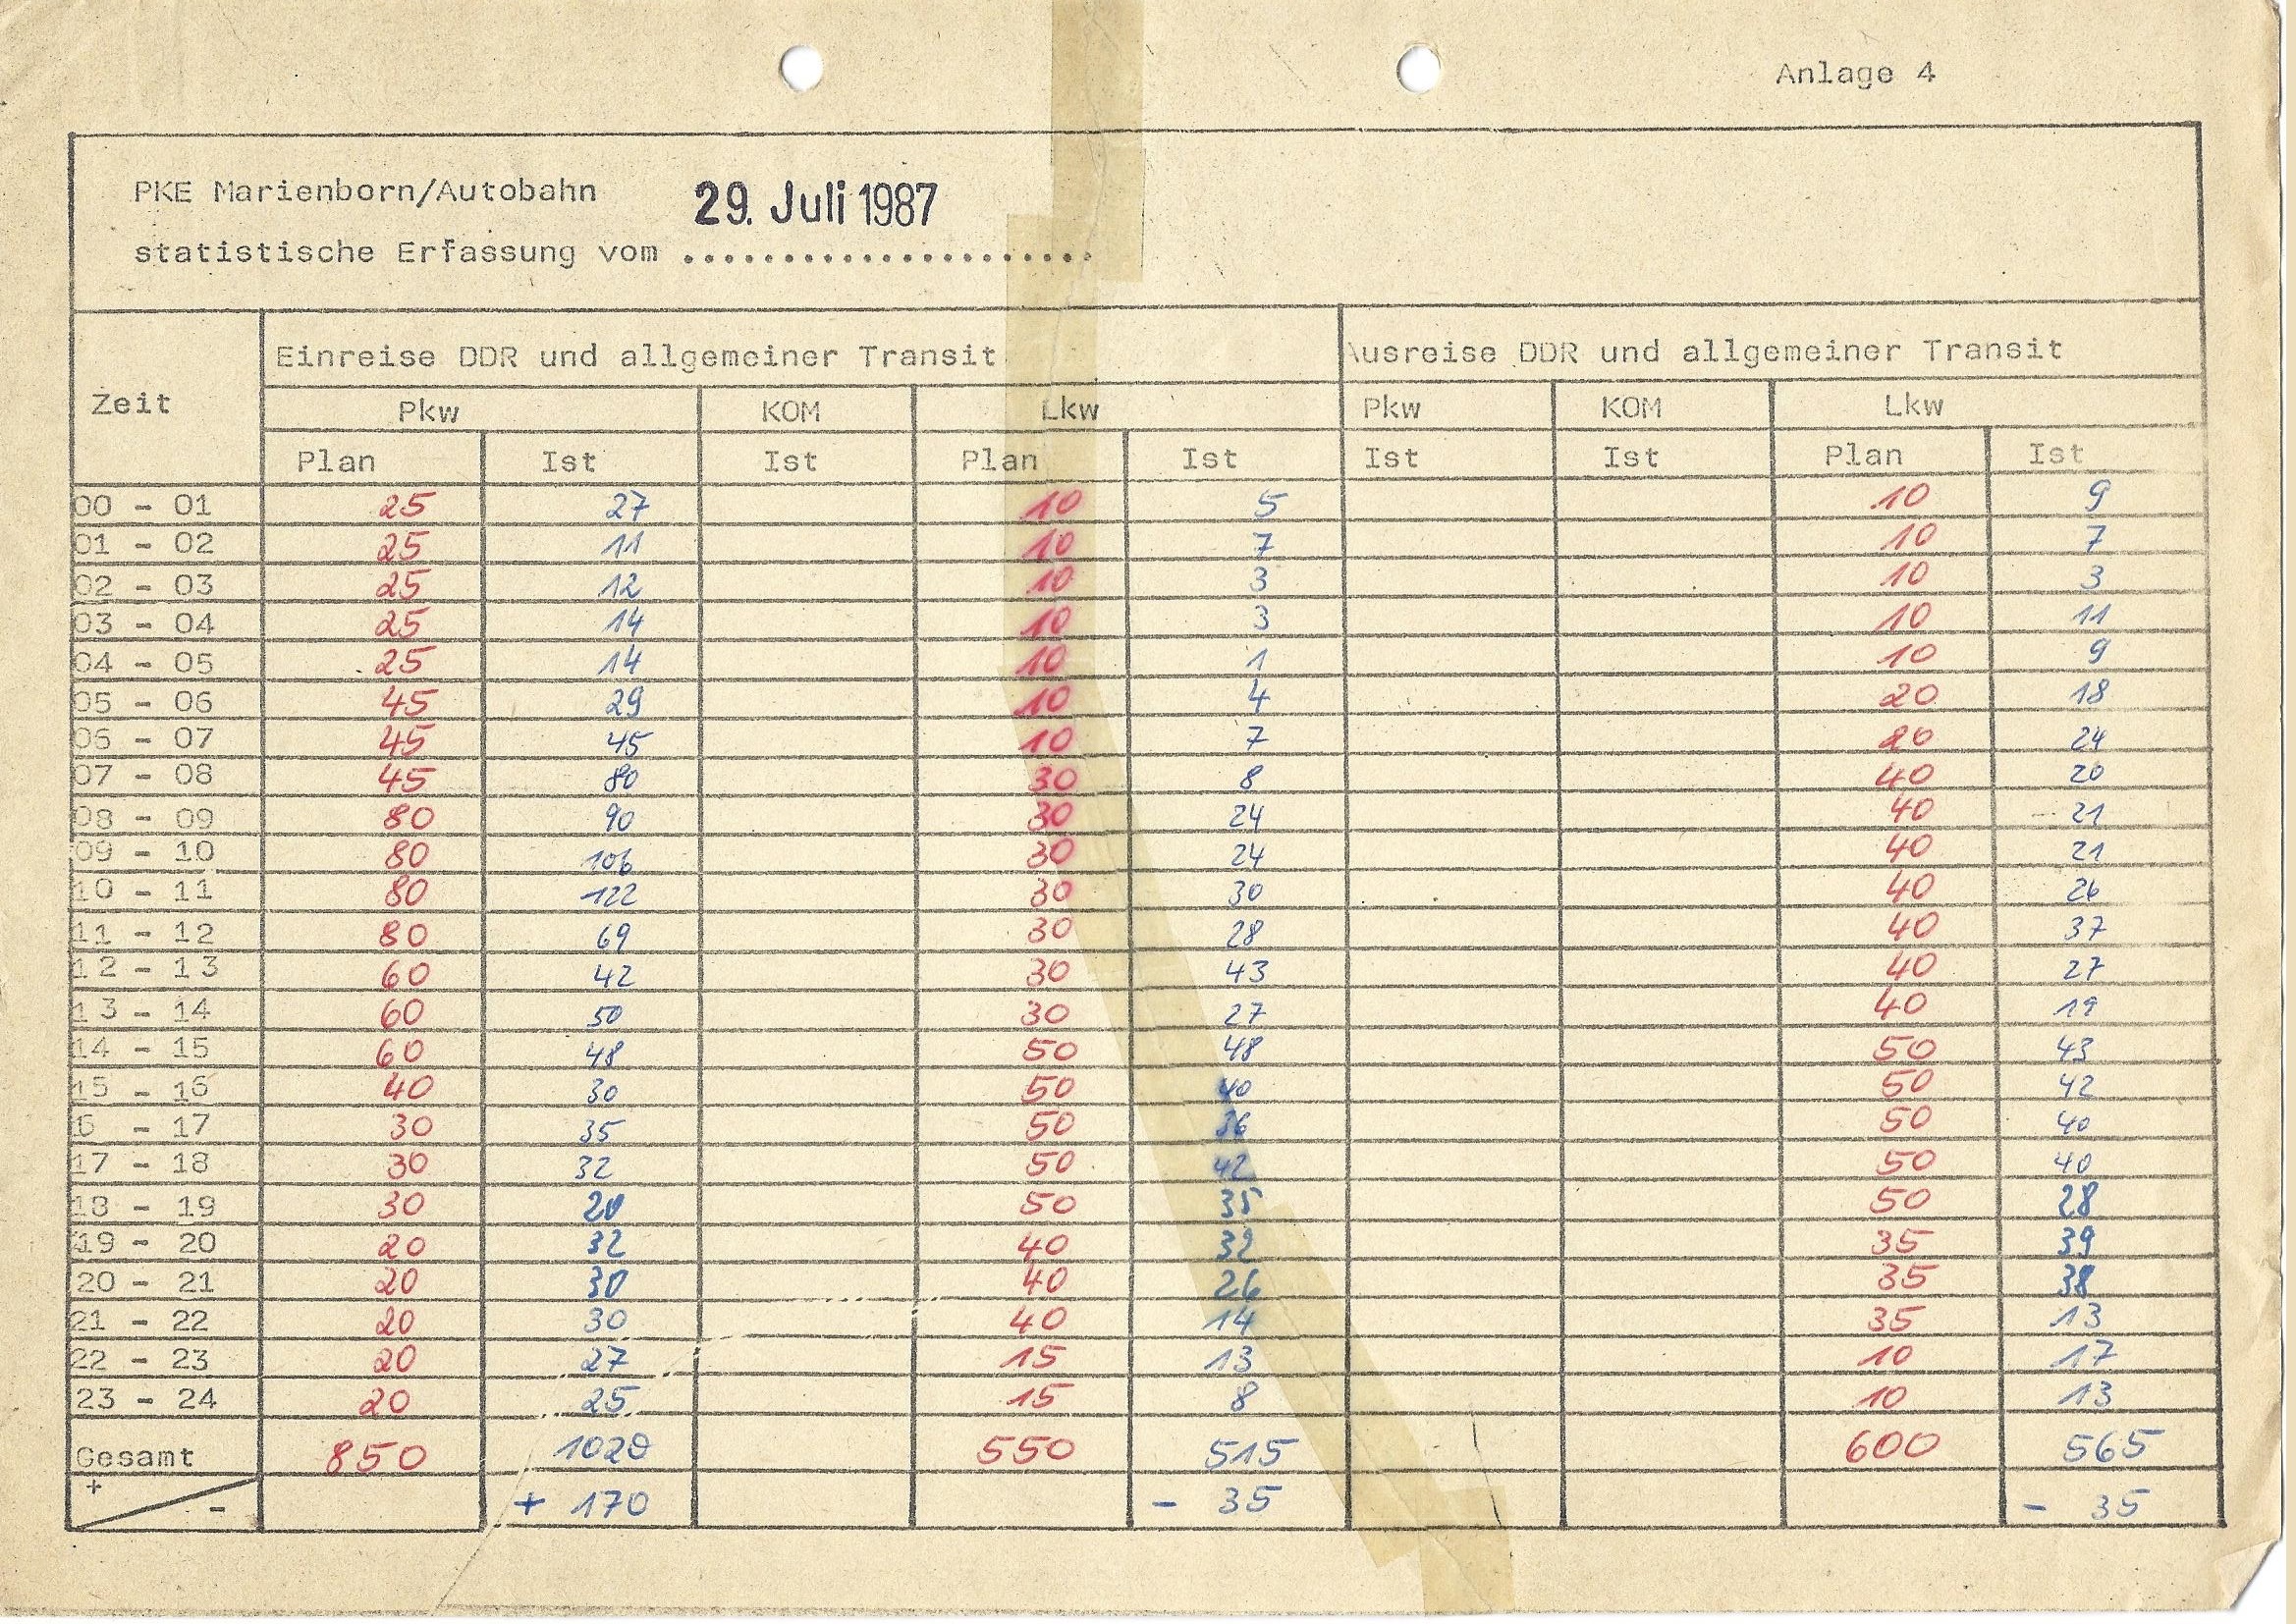 Anlage 4
PKE Marienborn/Autobahn 29. Juli 1987
statistische Erfassung vom ....................
Zeit Einreise DDR und allgemeiner Transit Ausreise DDR und allgemeiner Transit
Pkw KOM Lkw Pkw KOM Lkw
Plan Ist Ist Plan Ist Ist Ist Plan Ist
00 - 01 25 27 10 5 10 9
01 - 02 25 11 10 7 10 7
02 - 03 25 12 10 3 10 3
03 - 04 25 14 10 3 10 11
04 - 05 25 14 10 1 10 9
05 - 06 45 29 10 4 20 18
06 - 07 45 45 10 7 20 24
07 - 08 45 80 30 8 40 20
08 - 09 80 90 30 24 40 21
09 - 10 80 106 30 24 40 21
10 - 11 80 122 30 30 40 26
11 - 12 80 69 30 28 40 37
12 - 13 60 42 30 43 40 27
13 - 14 60 50 30 27 40 19
14 - 15 60 48 50 48 50 43
15 - 16 40 30 50 40 50 42
6 - 17 30 35 50 36 50 40
17 - 18 30 32 50 42 50 40
18 - 19 30 20 50 35 50 28
19 - 20 20 32 40 32 35 39
20 - 21 20 30 40 26 35 38
21 - 22 20 30 40 14 35 13
22 - 23 20 27 15 13 10 17
23 - 24 20 25 15 8 10 13
Gesamt 850 1020 550 515 600 565
+ - + 170 - 35 - 35